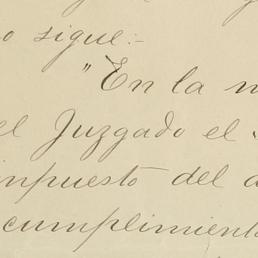 o sigue:-
"En la n
el Juzgado el
impuesto del a
cumplimient